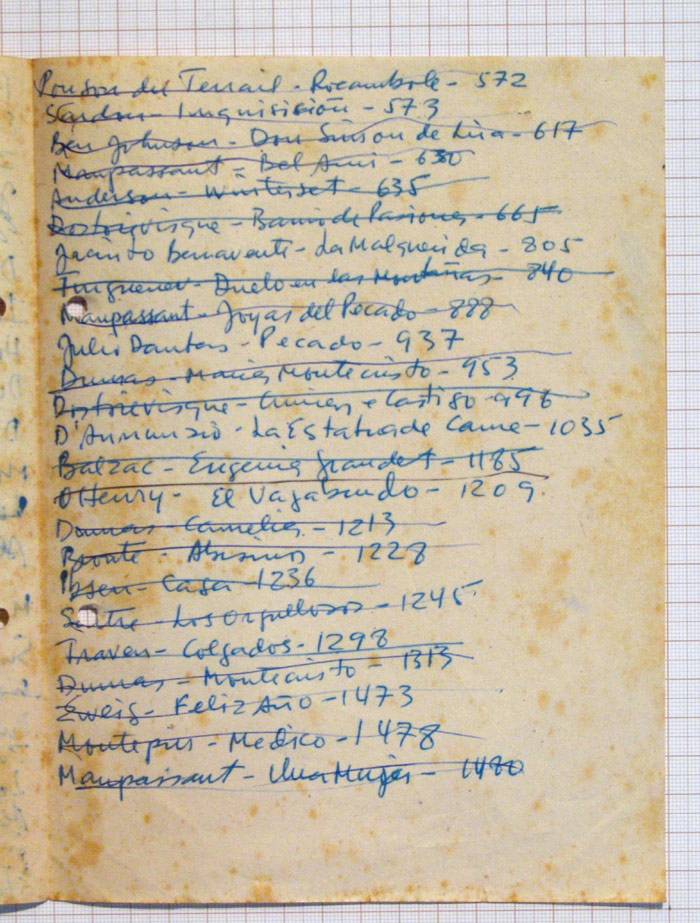 Ponson du Terrail - Rocambole - 572
Inquisición - 573
Ben Johnson - Don Simon de Lira - 617
Maupassant - Bel Ami - 630
Anderson - Winterset - 635
Dostoievisque - de Pasiones - 665
Jacinto Benavente - La Malquerida - 805
Turguenev - Duelo en las Montañas - 840
Maupassant - Joyas del Pecado - 888
Julio Dantas - Pecado - 937
Dumas - Montecristo - 953
Dostoievisque - Crimen e Castigo - 996
D'Annunzio - La Estatua de Carne - 1035
Balzac - Eugenia Grandet - 1185
O Henry - El Vagabundo - 1209
Dumas - Camelias - 1213
Bronte - Abismos - 1228
Ibsen - Casa - 1236
Sartre - Los Orgullosos - 1245
Traven - Colgados - 1298
Dumas - Montecristo - 1313
Zweig - Feliz Año - 1473
Montepin - Medico - 1478
Maupassant - Una Mujer - 1480